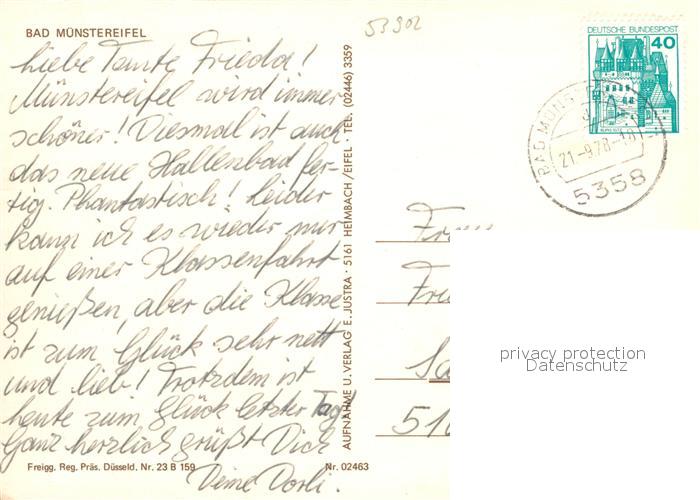 53902
BAD MÜNSTEREIFEL
Liebe Tante Frieda!
Münstereifel wird immer
schöner! Diesmal ist auch
das neue Hallenbad fer-
tig. Phantastisch! Leider
kann ich es wieder nur
auf einer Klassenfahrt
genießen, aber die Klasse
ist zum Glück sehr nett
und lieb! Trotzdem ist
heute zum Glück letzter Tag!
Ganz herzlich grüßt Dich
Deine Dorli.
Freigg. Reg. Präs. Düsseld. Nr. 23 B 159
Nr. 02463
AUFNAHME U. VERLAG E. JUSTRA · 5161 HEIMBACH/EIFEL · TEL. (02446) 3359
DEUTSCHE BUNDESPOST
40
BURG ELTZ
BAD MÜNST
21-9.78-18
5358
Fr
Fri
Sa
510
privacy protection
Datenschutz